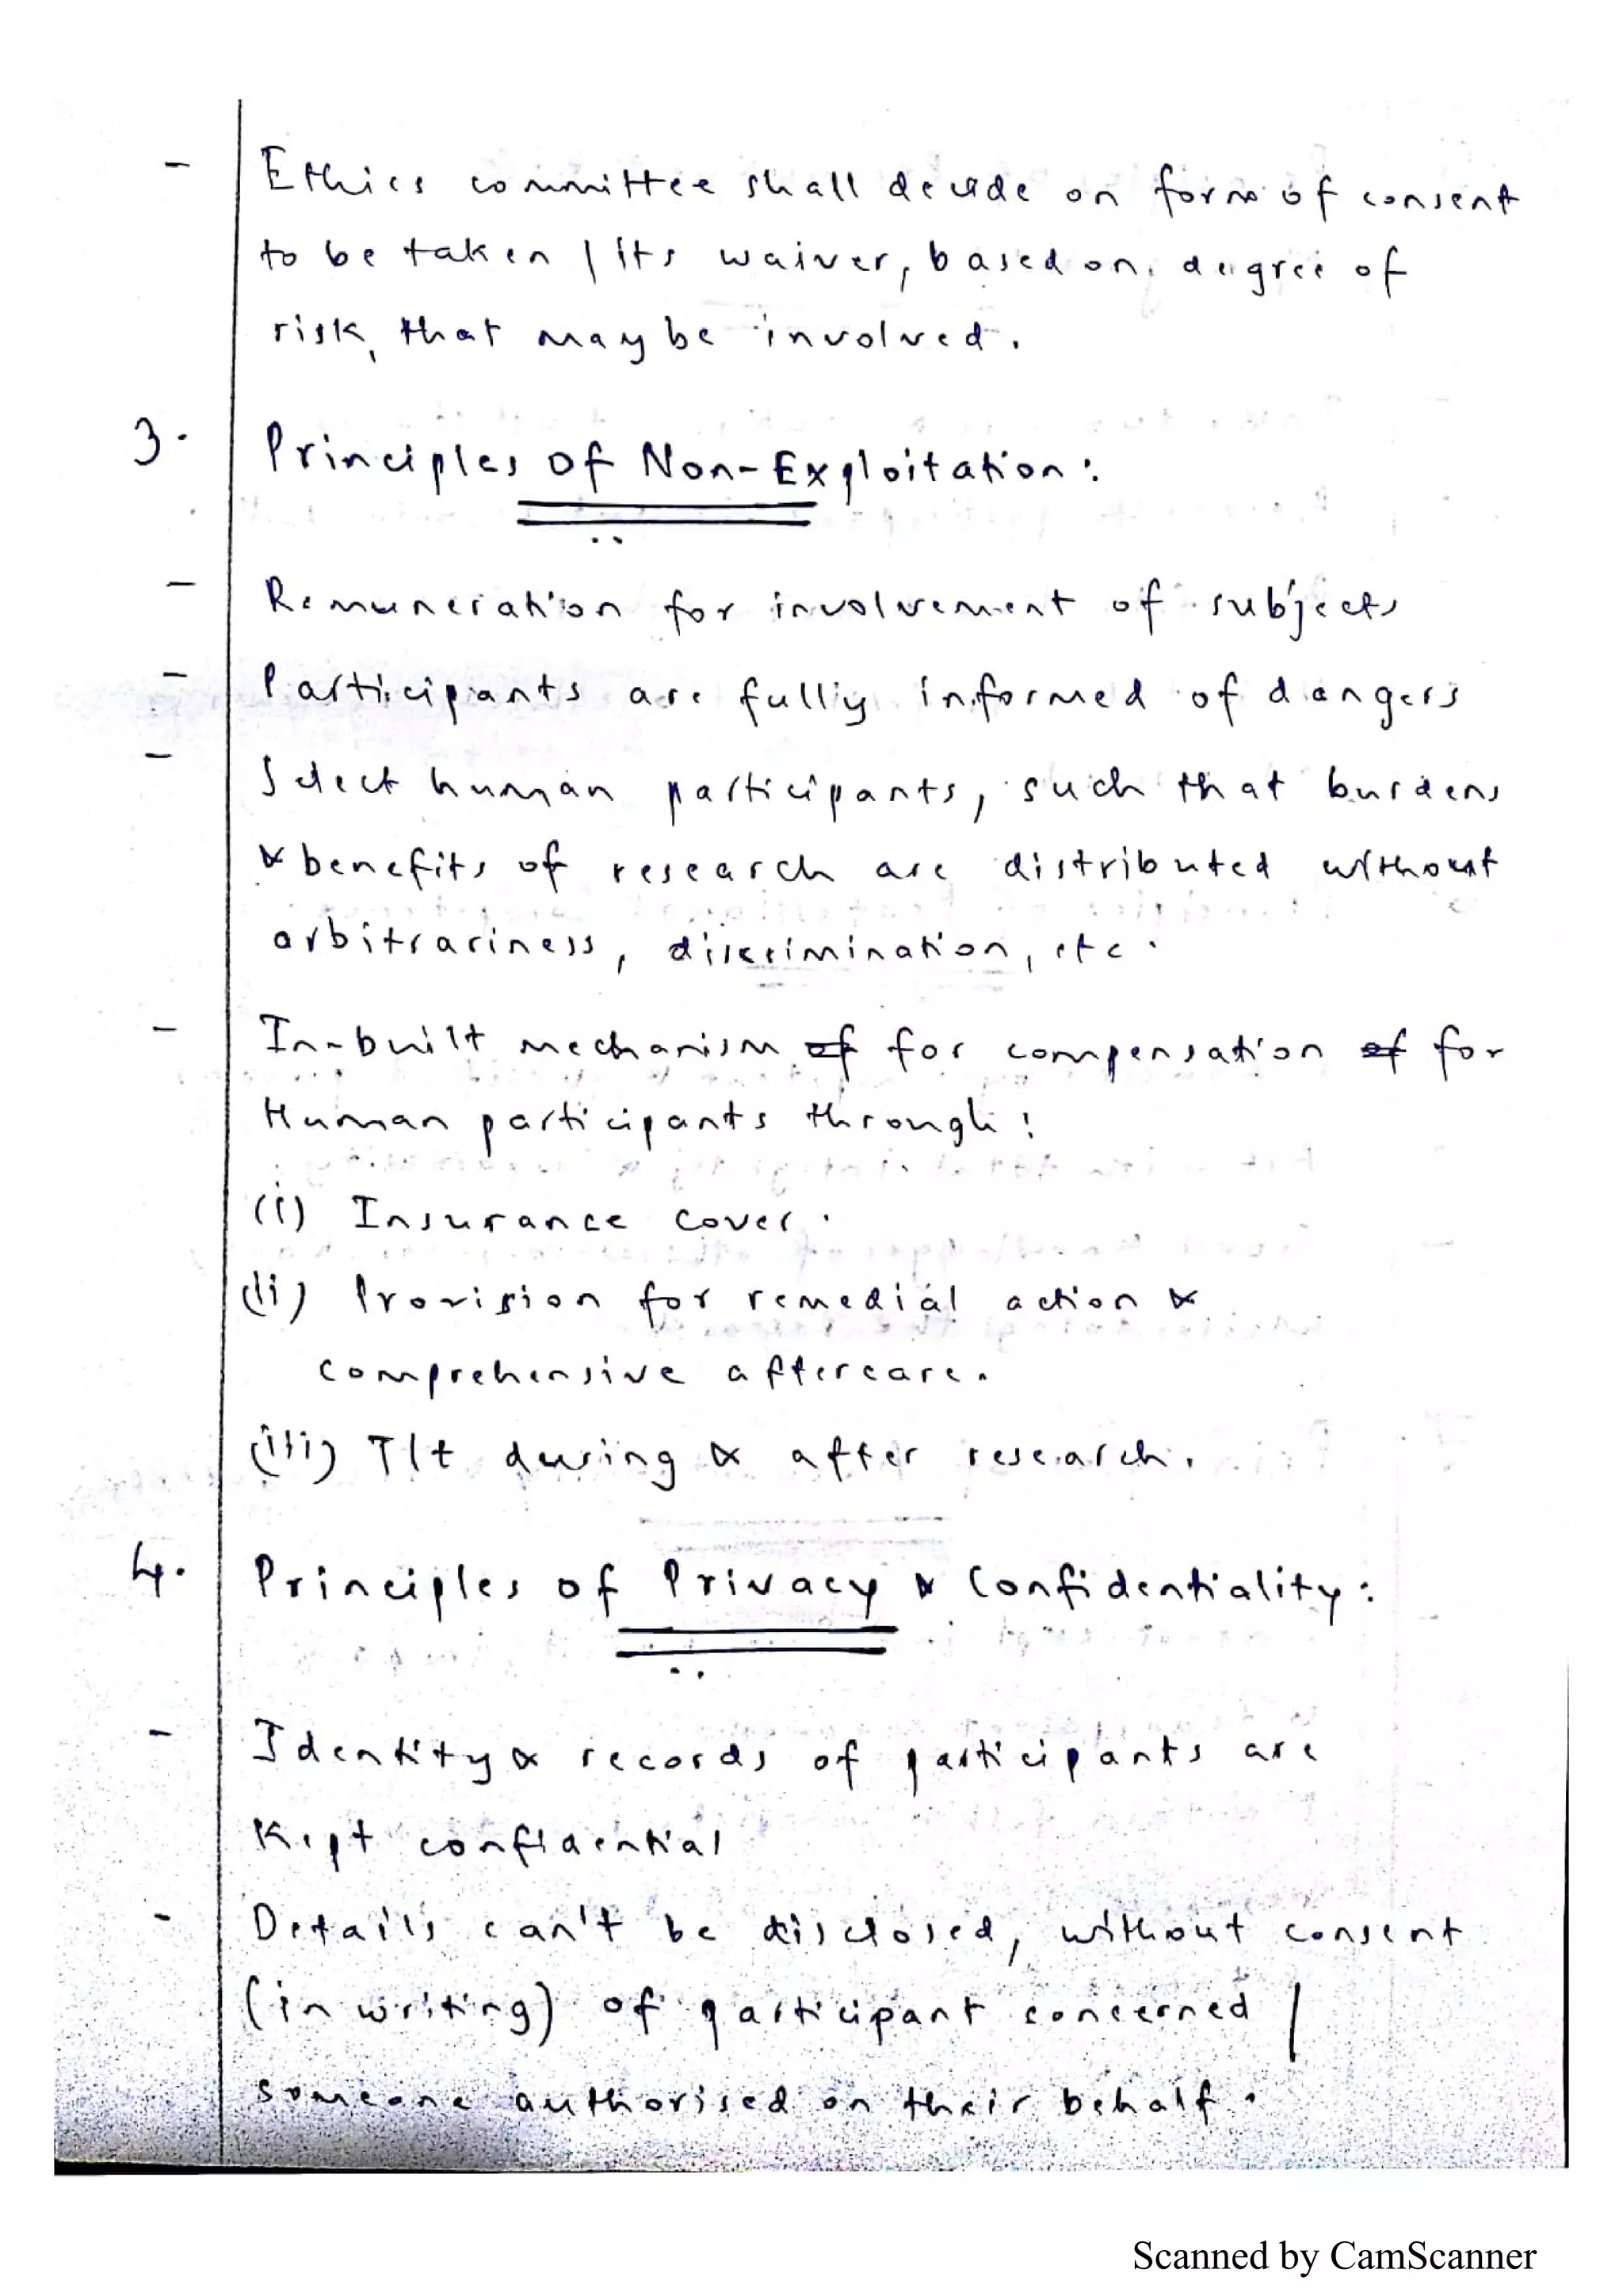 - Ethics committee shall decide on form of consent
to be taken / its waiver, based on degree of
risk, that may be involved.
3. Principles of Non-Exploitation:
- Remuneration for involvement of subjects
- Participants are fully informed of dangers
- Select human participants, such that burdens
& benefits of research are distributed without
arbitrariness, discrimination, etc.
- In-built mechanism of for compensation of for
Human participants through:
(i) Insurance cover.
(ii) Provision for remedial action &
comprehensive aftercare.
(iii) T/t during & after research.
4. Principles of Privacy & Confidentiality:
- Identity & records of participants are
Kept confidential
- Details can't be disclosed, without consent
(in writing) of participant concerned /
someone authorised on their behalf.
Scanned by CamScanner